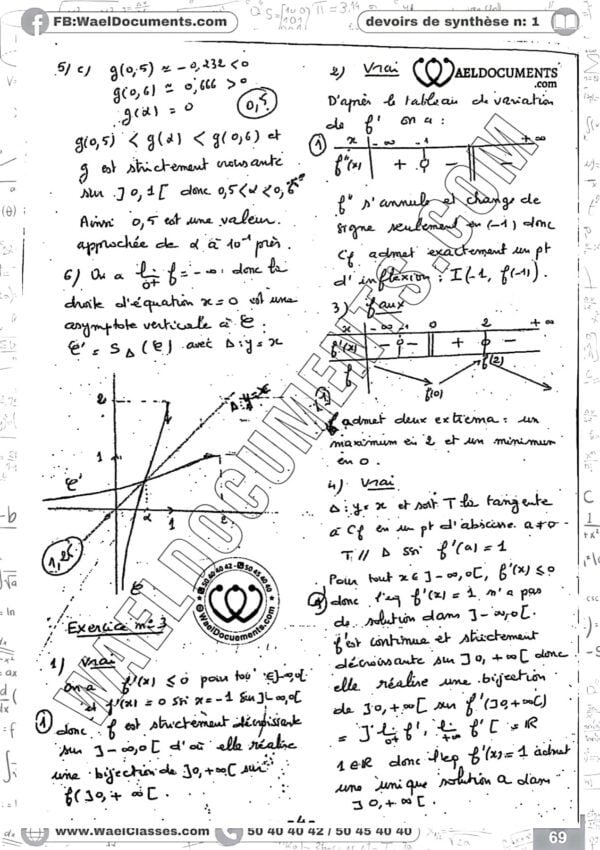 FB:WaelDocuments.com
devoirs de synthèse n: 1
5) c) g(0,5) ≈ -0,232 < 0
g(0,6) ≈ 0,666 > 0
g(α) = 0
0,5
g(0,5) < g(α) < g(0,6) et
g est strictement croissante
sur ]0,1[ donc 0,5 < α < 0,6
Ainsi 0,5 est une valeur
approchée de α à 10⁻¹ près.
6) On a lim 0+ f = -∞ donc la
droite d'équation x=0 est une
asymptote verticale à C.
C' = S_Δ (C) avec Δ: y = x
2
Δ: y = x
1
C'
α 1 2
1,25
C
Exercice n° 3
1) Vrai
On a f'(x) ≤ 0 pour tout x ∈ ]-∞,0[
et f'(x) = 0 ssi x = -1 sur ]-∞,0[
1
donc f est strictement décroissante
sur ]-∞,0[ d'où elle réalise
une bijection de ]0,+∞[ sur
f(]0,+∞[.
2) Vrai
WAELDOCUMENTS
.com
D'après le tableau de variation
de f' on a :
1
x -∞ -1 +∞
f''(x) + 0 - -
f'' s'annule et change de
signe seulement en (-1) donc
Cf admet exactement un pt
d'inflexion : I(-1, f(-1)).
3) faux
x -∞ -1 0 2 +∞
f'(x) - 0 - + 0 -
f f(0) f(2)
1
f admet deux extrema : un
maximum en 2 et un minimum
en 0.
4) Vrai
Δ: y = x et soit T la tangente
à Cf en un pt d'abscisse a ≠ 0
T // Δ ssi f'(a) = 1
Pour tout x ∈ ]-∞,0[, f'(x) ≤ 0
donc l'eq f'(x) = 1 n'a pas
de solution dans ]-∞,0[.
f' est continue et strictement
décroissante sur ]0,+∞[ donc
elle réalise une bijection
de ]0,+∞[ sur f'(]0,+∞[)
= ]lim 0+ f', lim +∞ f'[ = ℝ
1 ∈ ℝ donc l'eq f'(x) = 1 admet
une unique solution a dans
]0,+∞[.
WAELDOCUMENTS.COM
50 40 40 42 - 50 45 40 40
WaelDocuments.com
- 4 -
www.WaelClasses.com
50 40 40 42 / 50 45 40 40
69